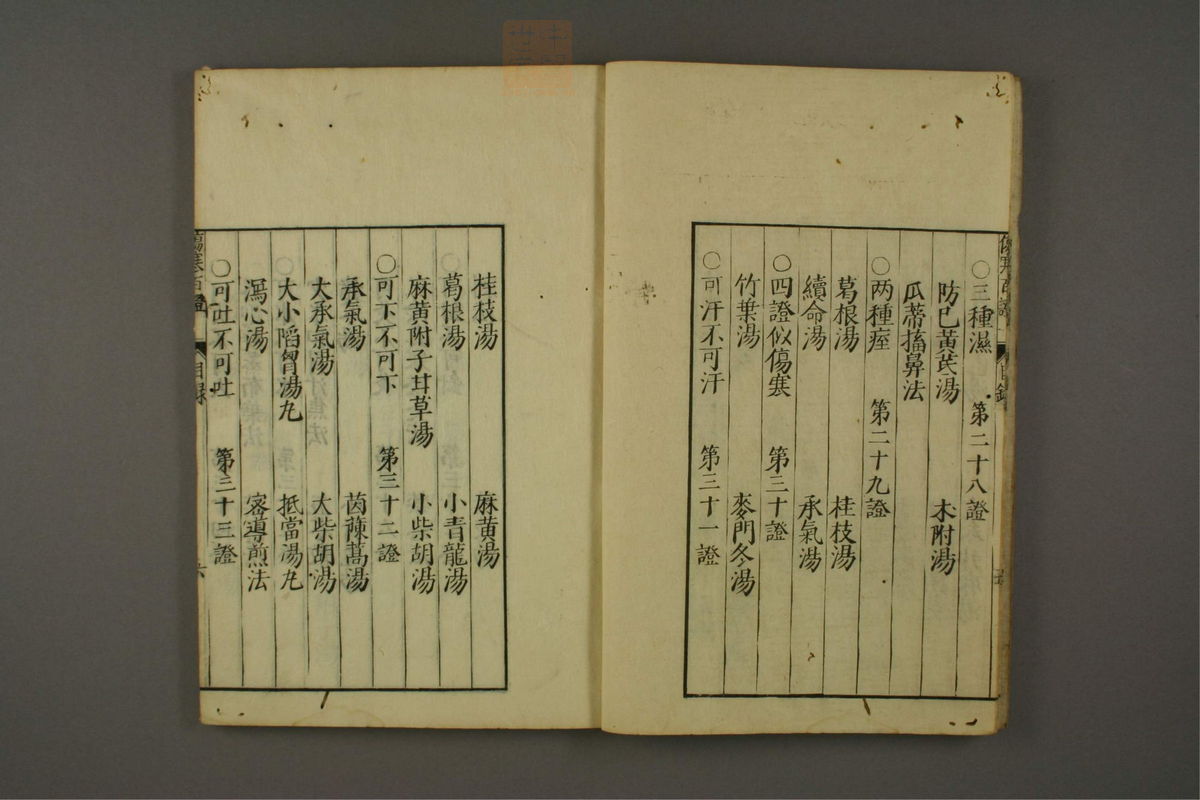 〇三種濕 第二十八證
防已黃芪湯 术附湯
瓜蒂搐鼻法
〇两種痓 第二十九證
葛根湯 桂枝湯
續命湯 承氣湯
〇四證似傷寒 第三十證
竹葉湯 麥門冬湯
〇可汗不可汗 第三十一證
桂枝湯 麻黃湯
葛根湯 小青龍湯
麻黃附子甘草湯 小柴胡湯
〇可下不可下 第三十二證
承氣湯 茵蔯蒿湯
大承氣湯 大柴胡湯
大小陷胷湯丸 抵當湯丸
瀉心湯 蜜導煎法
〇可吐不可吐 第三十三證
傷寒百證 目録 六